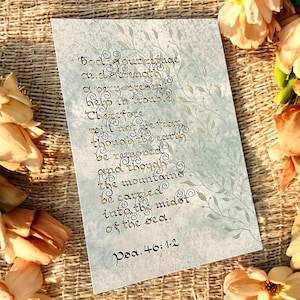 God is our refuge
and strength,
a very present
help in trouble.
Therefore
will not we fear,
though the earth
be removed,
and though
the mountains
be carried
into the midst
of the sea.
Psa. 46:1-2